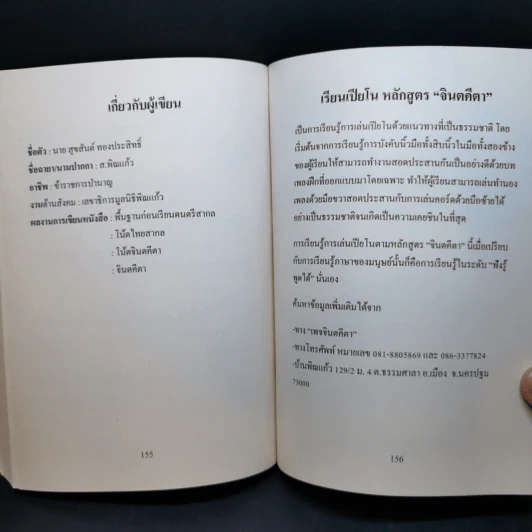 เกี่ยวกับผู้เขียน
ชื่อตัว : นาย สุขสันต์ ทองประสิทธิ์
ชื่อฉายา/นามปากกา : ส.พิณแก้ว
อาชีพ : ข้าราชการบำนาญ
งานด้านสังคม : เลขาธิการมูลนิธิพิณแก้ว
ผลงานการเขียนหนังสือ : พื้นฐานก่อนเรียนดนตรีสากล
: โน้ตไทยสากล
: โน้ตจินตคีตา
: จินตคีตา
155
เรียนเปียโน หลักสูตร “จินตคีตา”
เป็นการเรียนรู้การเล่นเปียโนด้วยแนวทางที่เป็นธรรมชาติ โดย
เริ่มต้นจากการเรียนรู้การบังคับนิ้วมือทั้งสิบนิ้วในมือทั้งสองข้าง
ของผู้เรียนให้สามารถทำงานสอดประสานกันเป็นอย่างดีด้วยบท
เพลงฝึกที่ออกแบบมาโดยเฉพาะ ทำให้ผู้เรียนสามารถเล่นทำนอง
เพลงด้วยมือขวาสอดประสานกับการเล่นคอร์ดด้วยมือซ้ายได้
อย่างเป็นธรรมชาติจนเกิดเป็นความเคยชินในที่สุด
การเรียนรู้การเล่นเปียโนตามหลักสูตร “จินตคีตา” นี้เมื่อเปรียบ
กับการเรียนรู้ภาษาของมนุษย์นั้นก็คือการเรียนรู้ในระดับ “ฟังรู้
พูดได้” นั่นเอง
ค้นหาข้อมูลเพิ่มเติมได้จาก
-ทาง “เพจจินตคีตา”
-ทางโทรศัพท์ หมายเลข 081-8805869 และ 086-3377824
-บ้านพิณแก้ว 129/2 ม. 4 ต.ธรรมศาลา อ.เมือง จ.นครปฐม
73000
156